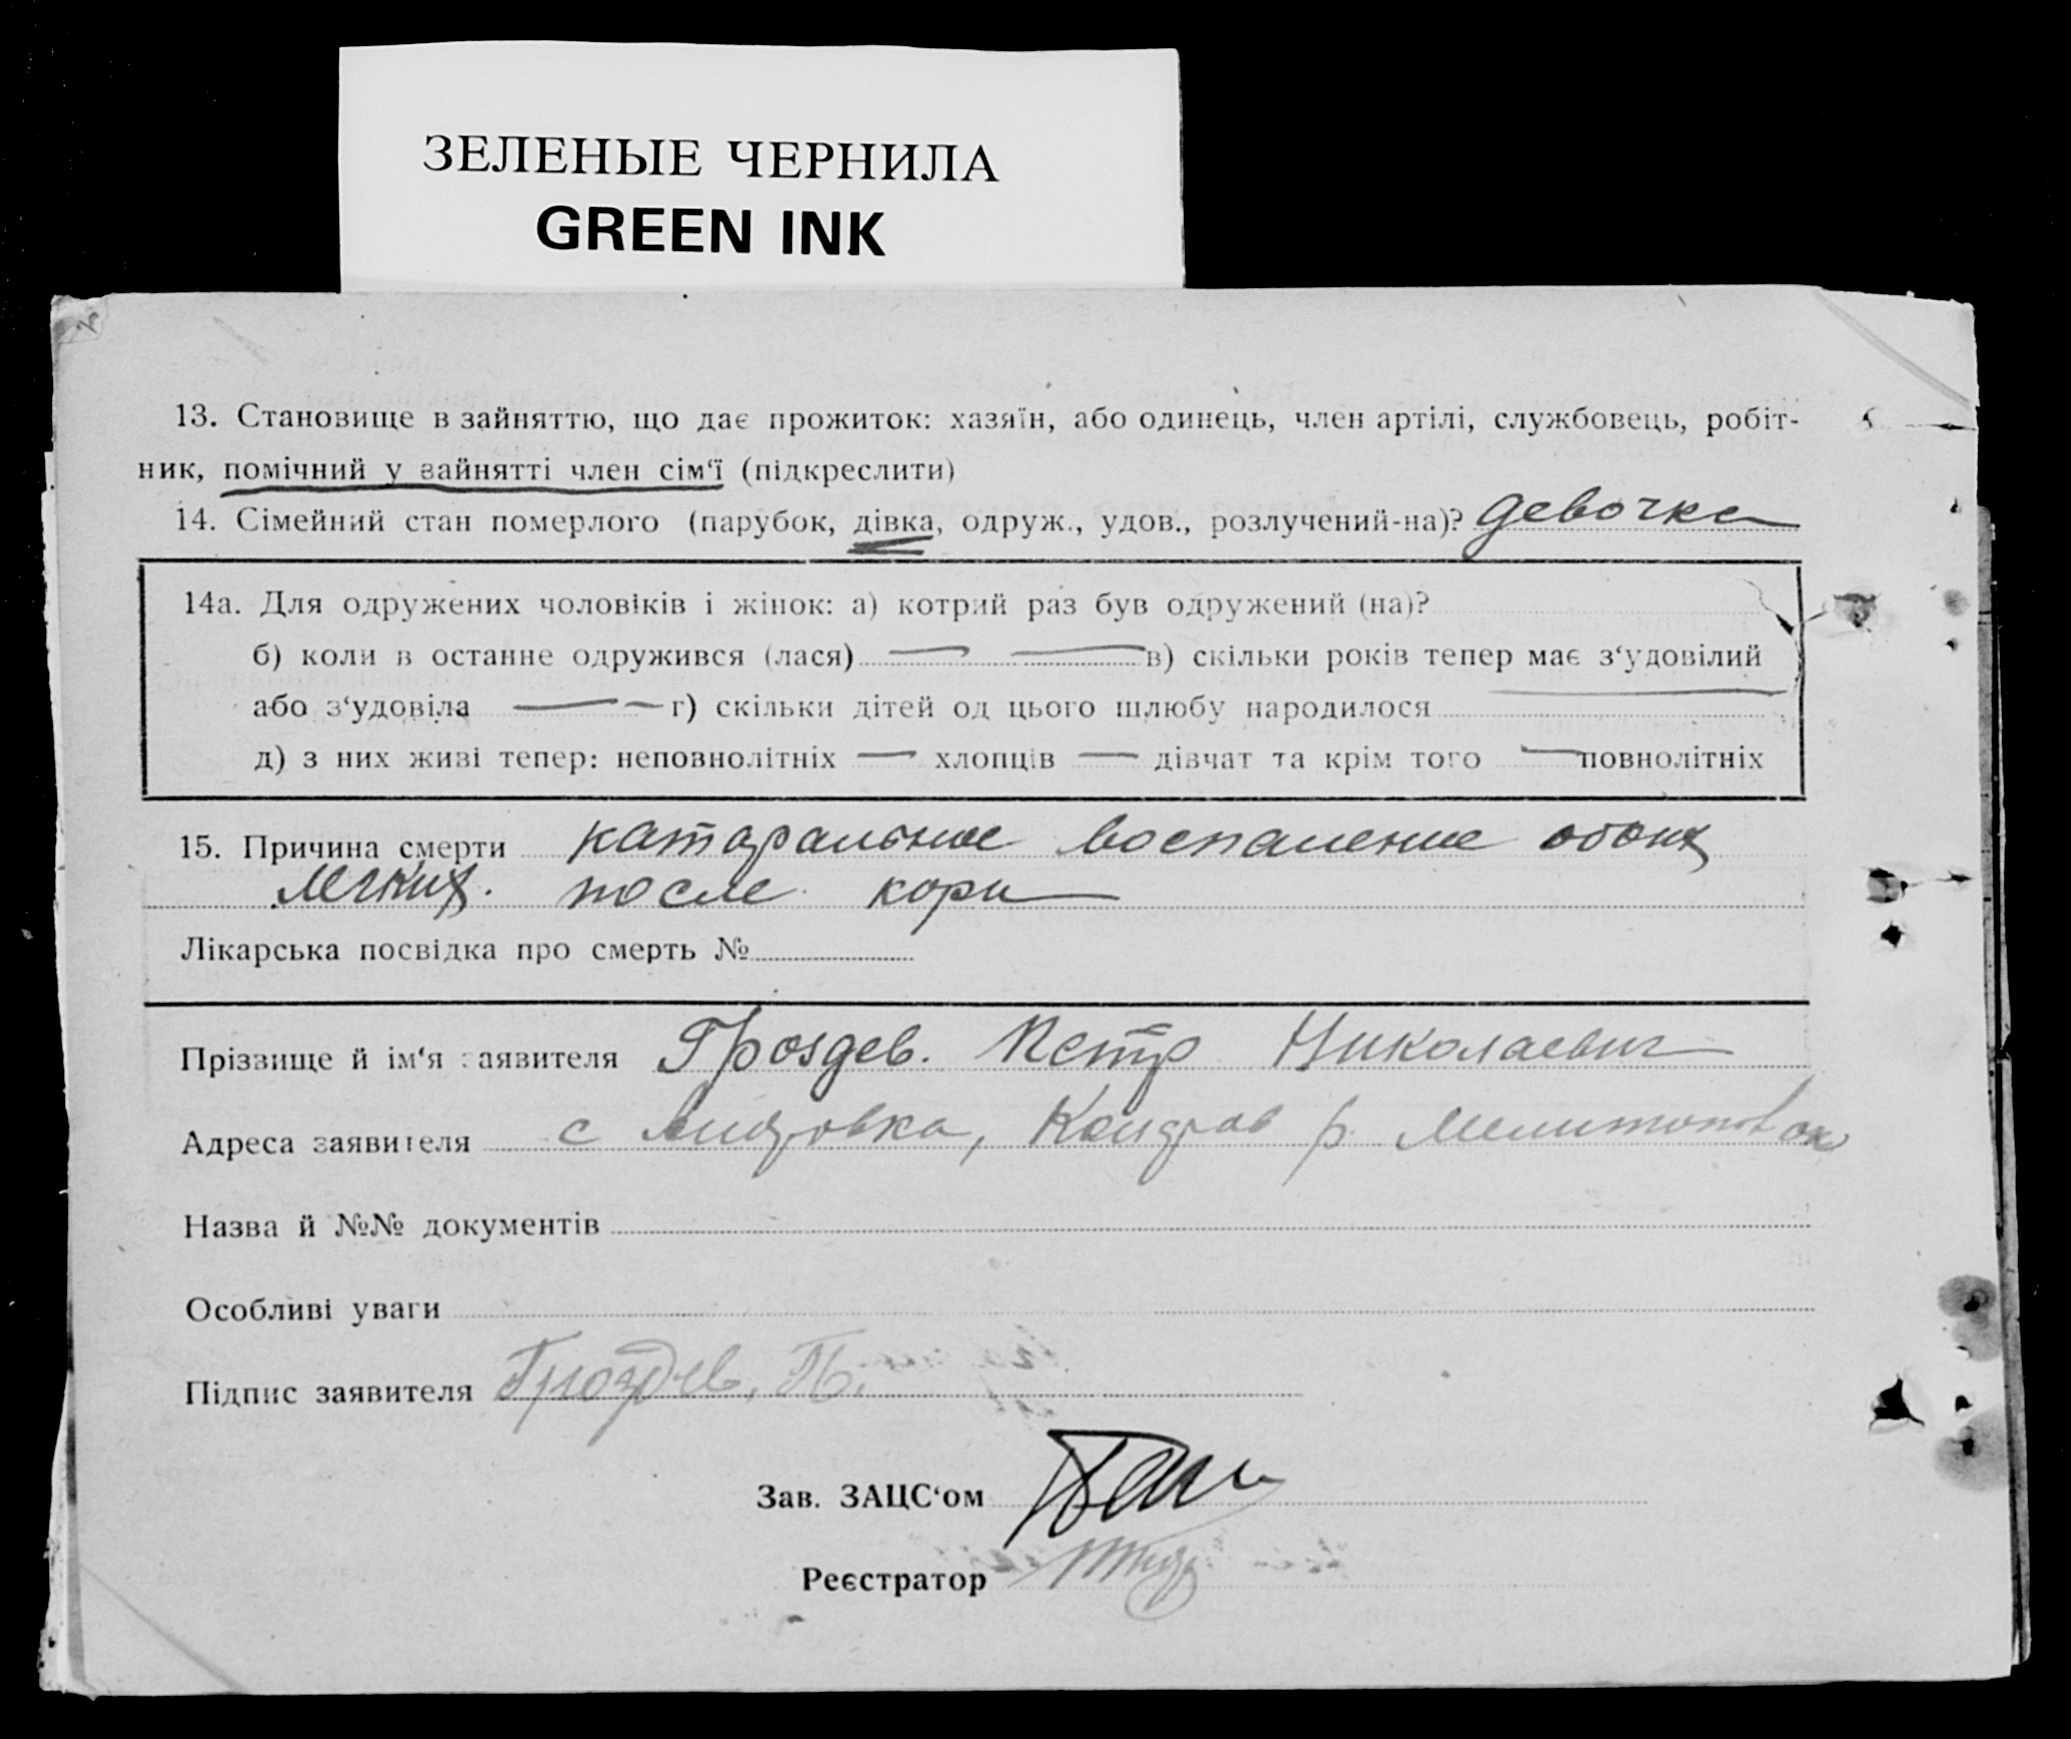 ЗЕЛЕНЫЕ ЧЕРНИЛА
GREEN INK
13. Становище в зайняттю, що дає прожиток: хазяїн, або одинець, член артілі, службовець, робіт-
ник, помічний у зайнятті член сім‘ї (підкреслити)
14. Сімейний стан померлого (парубок, дівка, одруж., удов., розлучений-на)? девочка
14а. Для одружених чоловіків і жінок: а) котрий раз був одружений (на)?
б) коли в останне одружився (лася) — — в) скільки років тепер має з‘удовілий
або з‘удовіла — — г) скільки дітей од цього шлюбу народилося
д) з них живі тепер: неповнолітніх — хлопців — дівчат та крім того — повнолітніх
15. Причина смерти катаральное воспаление обоих
легких. после кори
Лікарська посвідка про смерть №
Прізвище й ім‘я заявителя Гроздев. Петр Николаевич
Адреса заявителя с р. Мелитопольск
Назва й №№ документів
Особливі уваги
Підпис заявителя Гроздев, П.
Зав. ЗАЦС‘ом
Реєстратор